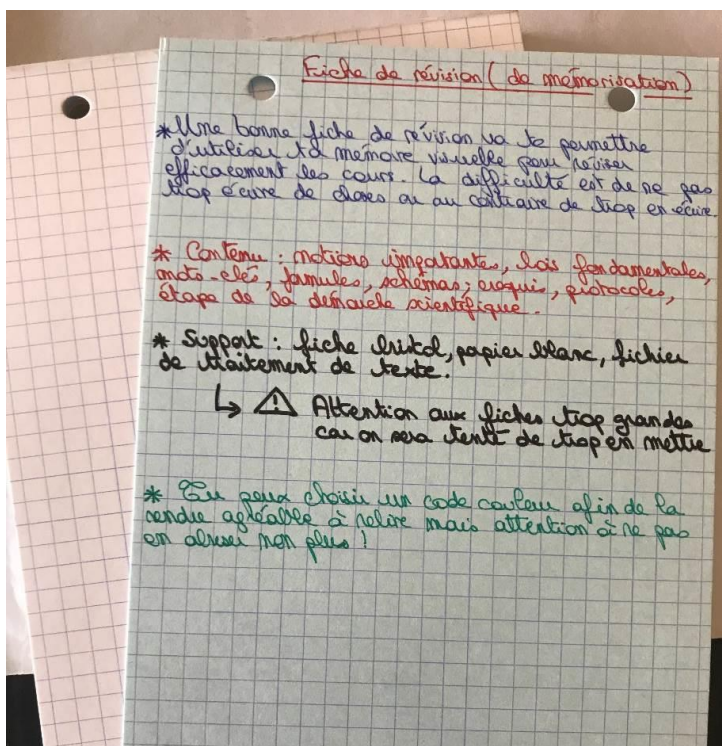 Fiche de révision ( de mémorisation)
* Une bonne fiche de révision va te permettre
d'utiliser ta mémoire visuelle pour réviser
efficacement les cours. La difficulté est de ne pas
trop écrire de choses ou au contraire de trop en écrire
* Contenu : notions importantes, lois fondamentales,
mots-clés, formules, schémas, croquis, protocoles,
étape de la démarche scientifique.
* Support : fiche bristol, papier blanc, fichier
de traitement de texte.
↳ ⚠ Attention aux fiches trop grandes
car on sera tenté de trop en mettre
* Tu peux choisir un code couleur afin de la
rendre agréable à relire mais attention à ne pas
en abuser non plus !